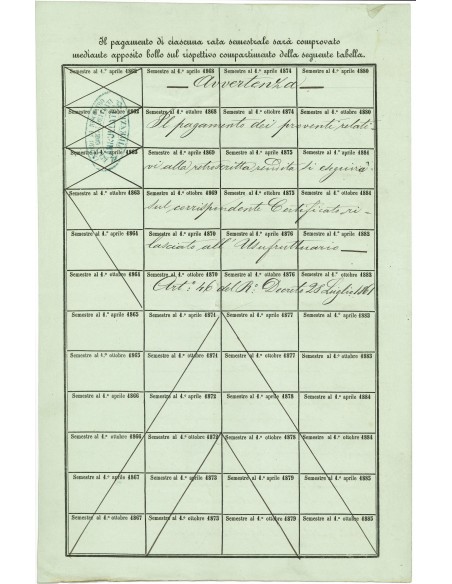 Il pagamento di ciascuna rata semestrale sarà comprovato
mediante apposito bollo sul rispettivo compartimento della seguente tabella.
Semestre al 1.° aprile 1862 Semestre al 1.° aprile 1868 Semestre al 1.° aprile 1874 Semestre al 1.° aprile 1880
Avvertenza
Semestre al 1.° ottobre 1868 Semestre al 1.° ottobre 1874 Semestre al 1.° ottobre 1880
Il pagamento dei proventi relati-
Semestre al 1.° aprile 1869 Semestre al 1.° aprile 1875 Semestre al 1.° aprile 1881
vi alla retroscritta rendita si eseguirà
Semestre al 1.° ottobre 1863 Semestre al 1.° ottobre 1869 Semestre al 1.° ottobre 1875 Semestre al 1.° ottobre 1881
sul corrispondente Certificato, ri-
Semestre al 1.° aprile 1864 Semestre al 1.° aprile 1870 Semestre al 1.° aprile 1876 Semestre al 1.° aprile 1882
lasciato all'Usufruttuario
Semestre al 1.° ottobre 1864 Semestre al 1.° ottobre 1870 Semestre al 1.° ottobre 1876 Semestre al 1.° ottobre 1882
Art.° 46 del R.° Decreto 28 Luglio 1861
Semestre al 1.° aprile 1865 Semestre al 1.° aprile 1871 Semestre al 1.° aprile 1877 Semestre al 1.° aprile 1883
Semestre al 1.° ottobre 1865 Semestre al 1.° ottobre 1871 Semestre al 1.° ottobre 1877 Semestre al 1.° ottobre 1883
Semestre al 1.° aprile 1866 Semestre al 1.° aprile 1872 Semestre al 1.° aprile 1878 Semestre al 1.° aprile 1884
Semestre al 1.° ottobre 1866 Semestre al 1.° ottobre 1872 Semestre al 1.° ottobre 1878 Semestre al 1.° ottobre 1884
Semestre al 1.° aprile 1867 Semestre al 1.° aprile 1873 Semestre al 1.° aprile 1879 Semestre al 1.° aprile 1885
Semestre al 1.° ottobre 1867 Semestre al 1.° ottobre 1873 Semestre al 1.° ottobre 1879 Semestre al 1.° ottobre 1885